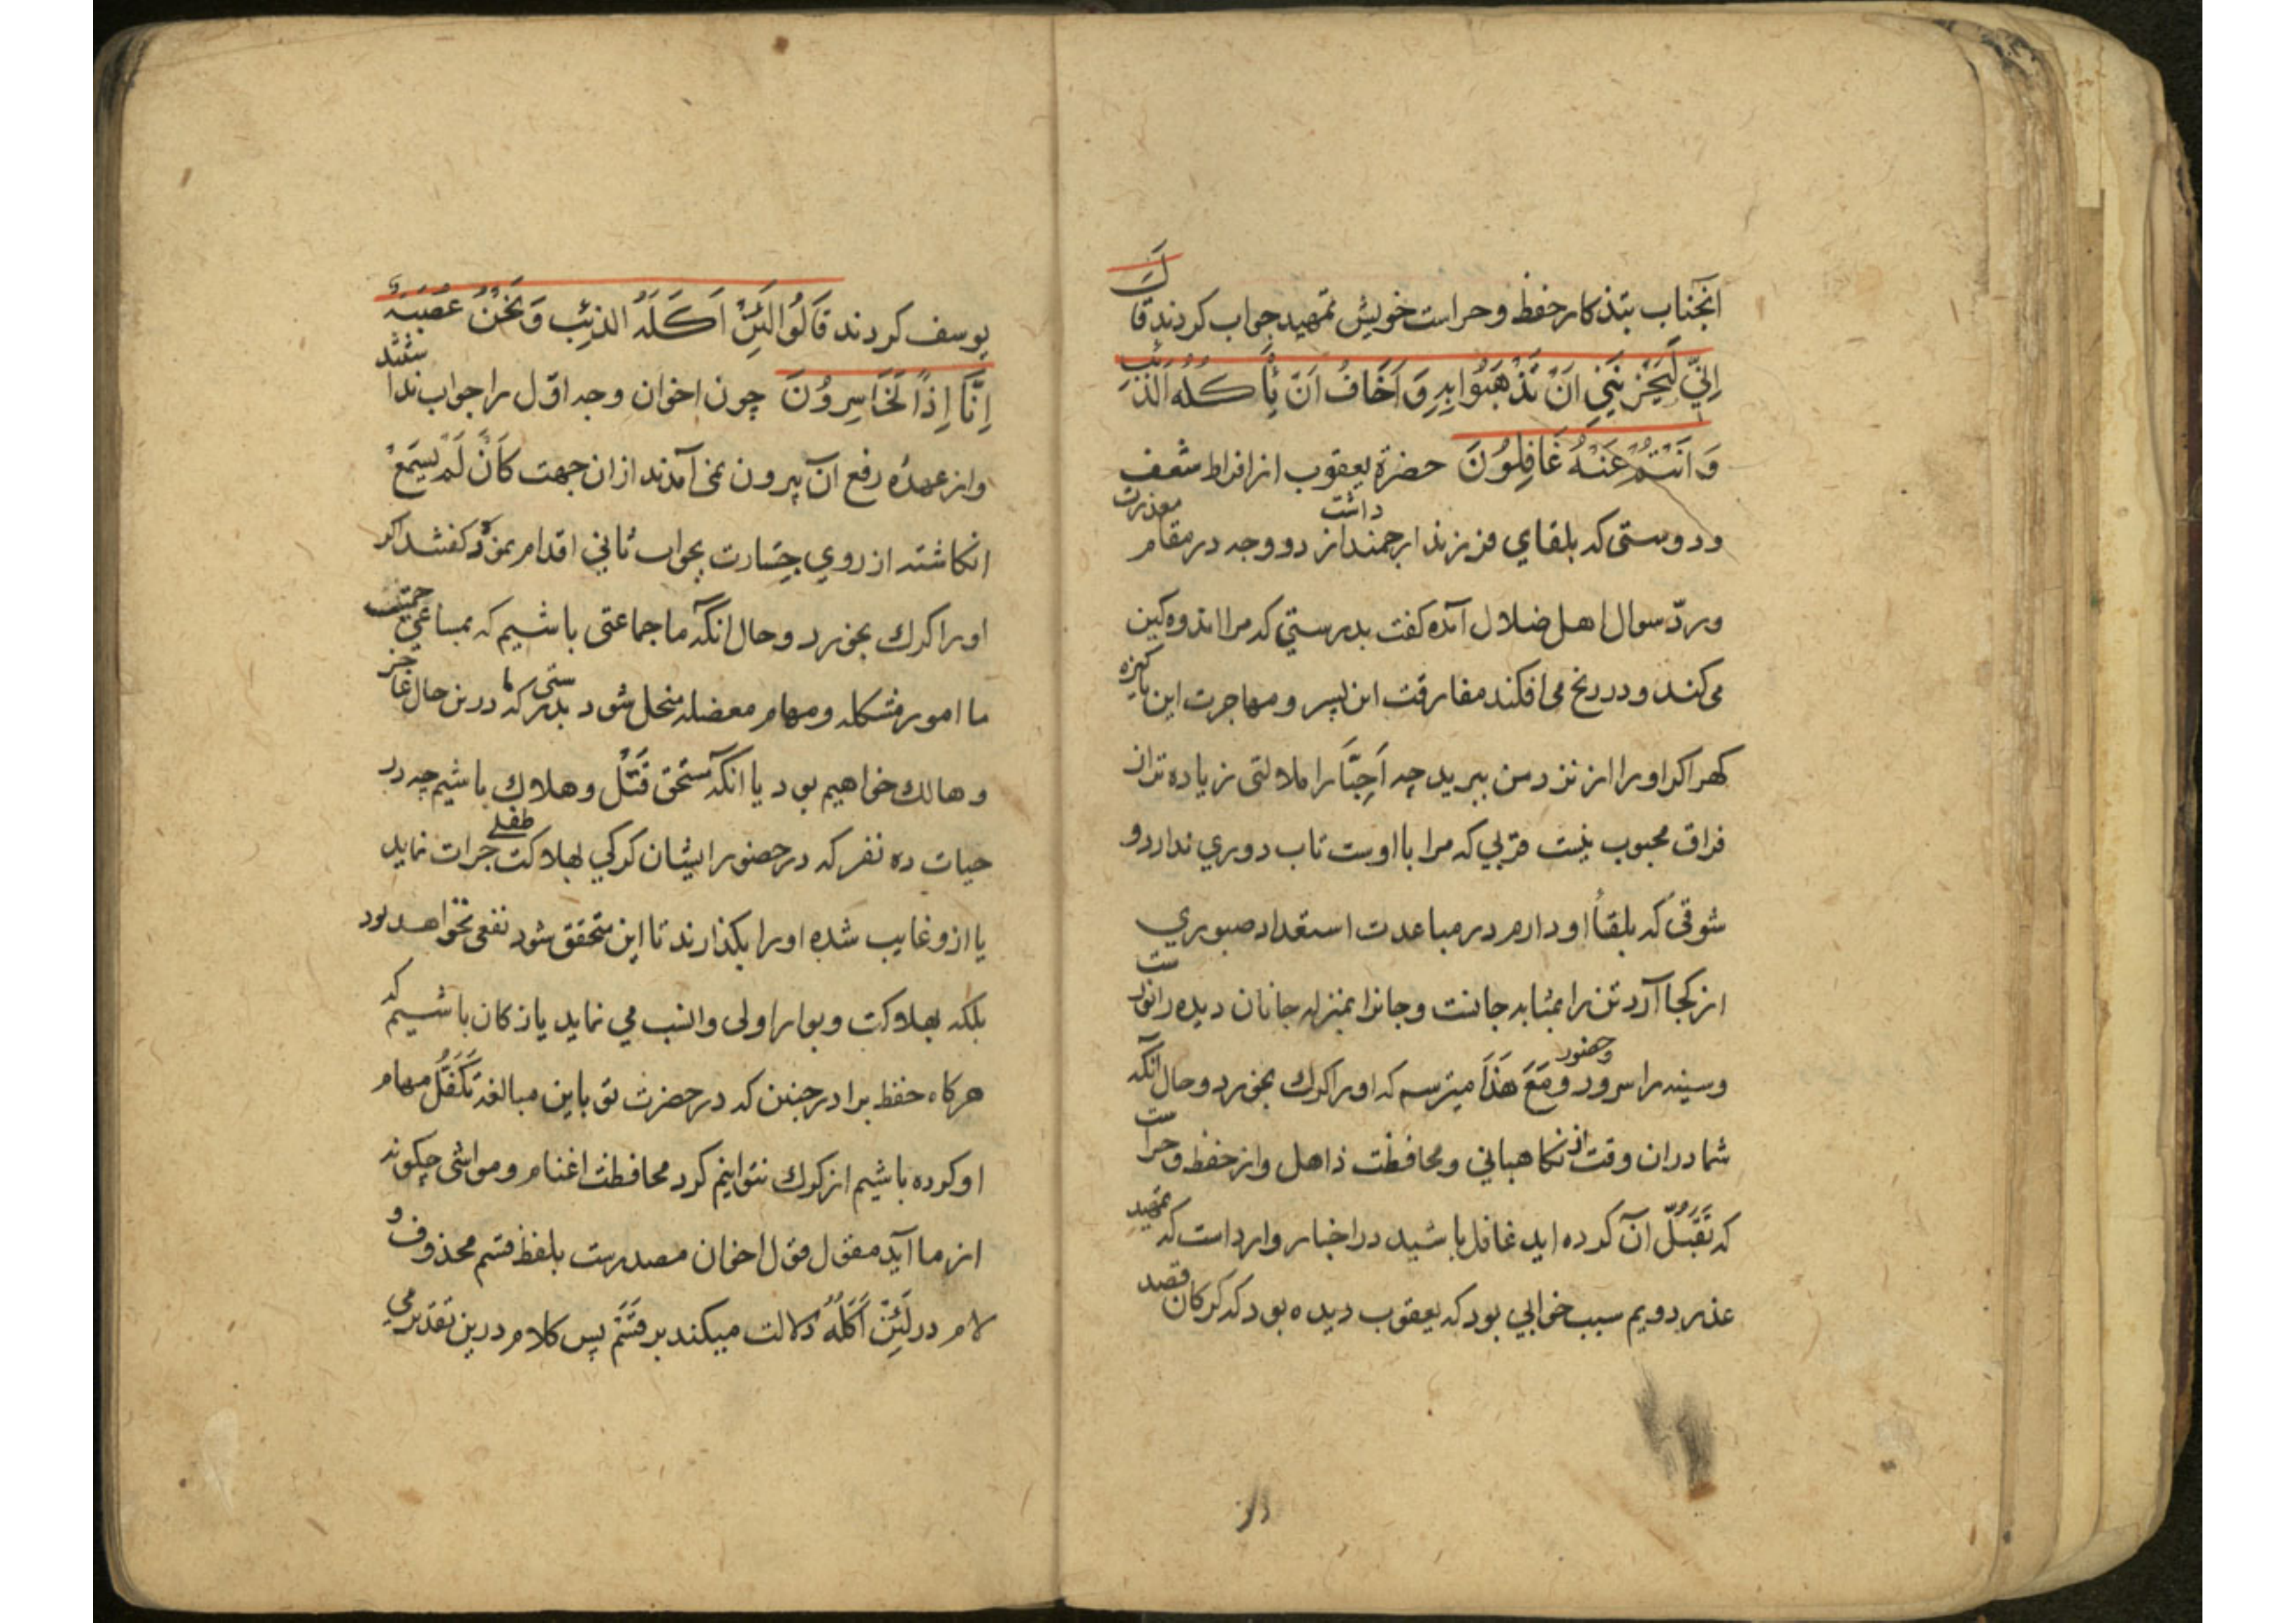 انجناب بتذکار حفظ وحراست خویش تمهید جواب کردند قَالَ
اِنِّي لَيَحْزُنَنِي اَنْ تَذْهَبُوا بِهِ وَاَخَافُ اَنْ يَأْكُلَهُ الذِّئْبُ
وَاَنْتُمْ عَنْهُ غَافِلُونَ حضرة یعقوب از افراط شعف
ودوستی که بلقای فرزند ارجمند داشت از دو وجه در مقام معذرت
وردّ سوال اهل ضلال آمده کفت بدرستي که مرا اندوه کین
می کند و در رنج می افکند مفارقت این پسر و مهاجرت این پاکیزه
کهر اکر اورا از نزد من ببرید چه اَحِبَّا را ملالتی زیاده تر از
فراق محبوب نیست قربي که مرا با اوست تاب دوري ندارد و
شوقی که بلقأ او دارم در مباعدت استعداد صبوري
از کجا آرد تن را بمثابه جانست وجانرا بمنزله جانان دیده را نورست
وسینه را سرور وحضور ومَعَ هَذَا میترسم که اورا کرك بخورد وحال آنکه
شما دران وقت از نکاهباني ومحافظت ذاهل واز حفظ وحراست
که تَقَبُّلِ آن کرده اید غافل باشید در اخبار وارد است که تمهید
عذر دویم سبب خوابي بود که یعقوب دیده بود که کرکان قصد
یوسف کردند قَالُوا لَئِنْ اَكَلَهُ الذِّئْبُ وَنَحْنُ عُصْبَةٌ
اِنَّا اِذًا لَخَاسِرُونَ چون اخوان وجه اوّل را جواب نداشتند
واز عهدۀ رفع آن بیرون نمی آمدند ازان جهت كَاَنْ لَمْ يَسْمَعْ
انکاشته از روي جسارت بجواب ثاني اقدام نموده کفتند اکر
اورا کرك بخورد وحال آنکه ما جماعتی باشیم که بمساعي جمیله
ما امور مشکله ومهام معضله منحل شود بدرستی که ما درین حال عاجز
وهالك خواهیم بود یا آنکه مستحق قتل وهلاك باشیم چه در
حیات ده نفر که در حضور ایشان کرکي بهلاکت طفلے جرات نماید
یا ازو غایب شده اورا بکذارند تا این متحقق شود نفعی نخواهد بود
بلکه بهلاکت وبوار اولی وانسب می نماید یا زکان باشیم که
هرکاه حفظ برادر چنین که در حضرت تو باین مبالغه تَكَفُّلِ مهام
او کرده باشیم از کرك نتوانیم کرد محافظت اغنام ومواشی چکونه
از ما آید مقول قول اخوان مصدرست بلفظ قسم محذوف و
لام در لَئِنْ اَكَلَهُ دلالت میکند بر قسم پس کلام درین تقدیر می